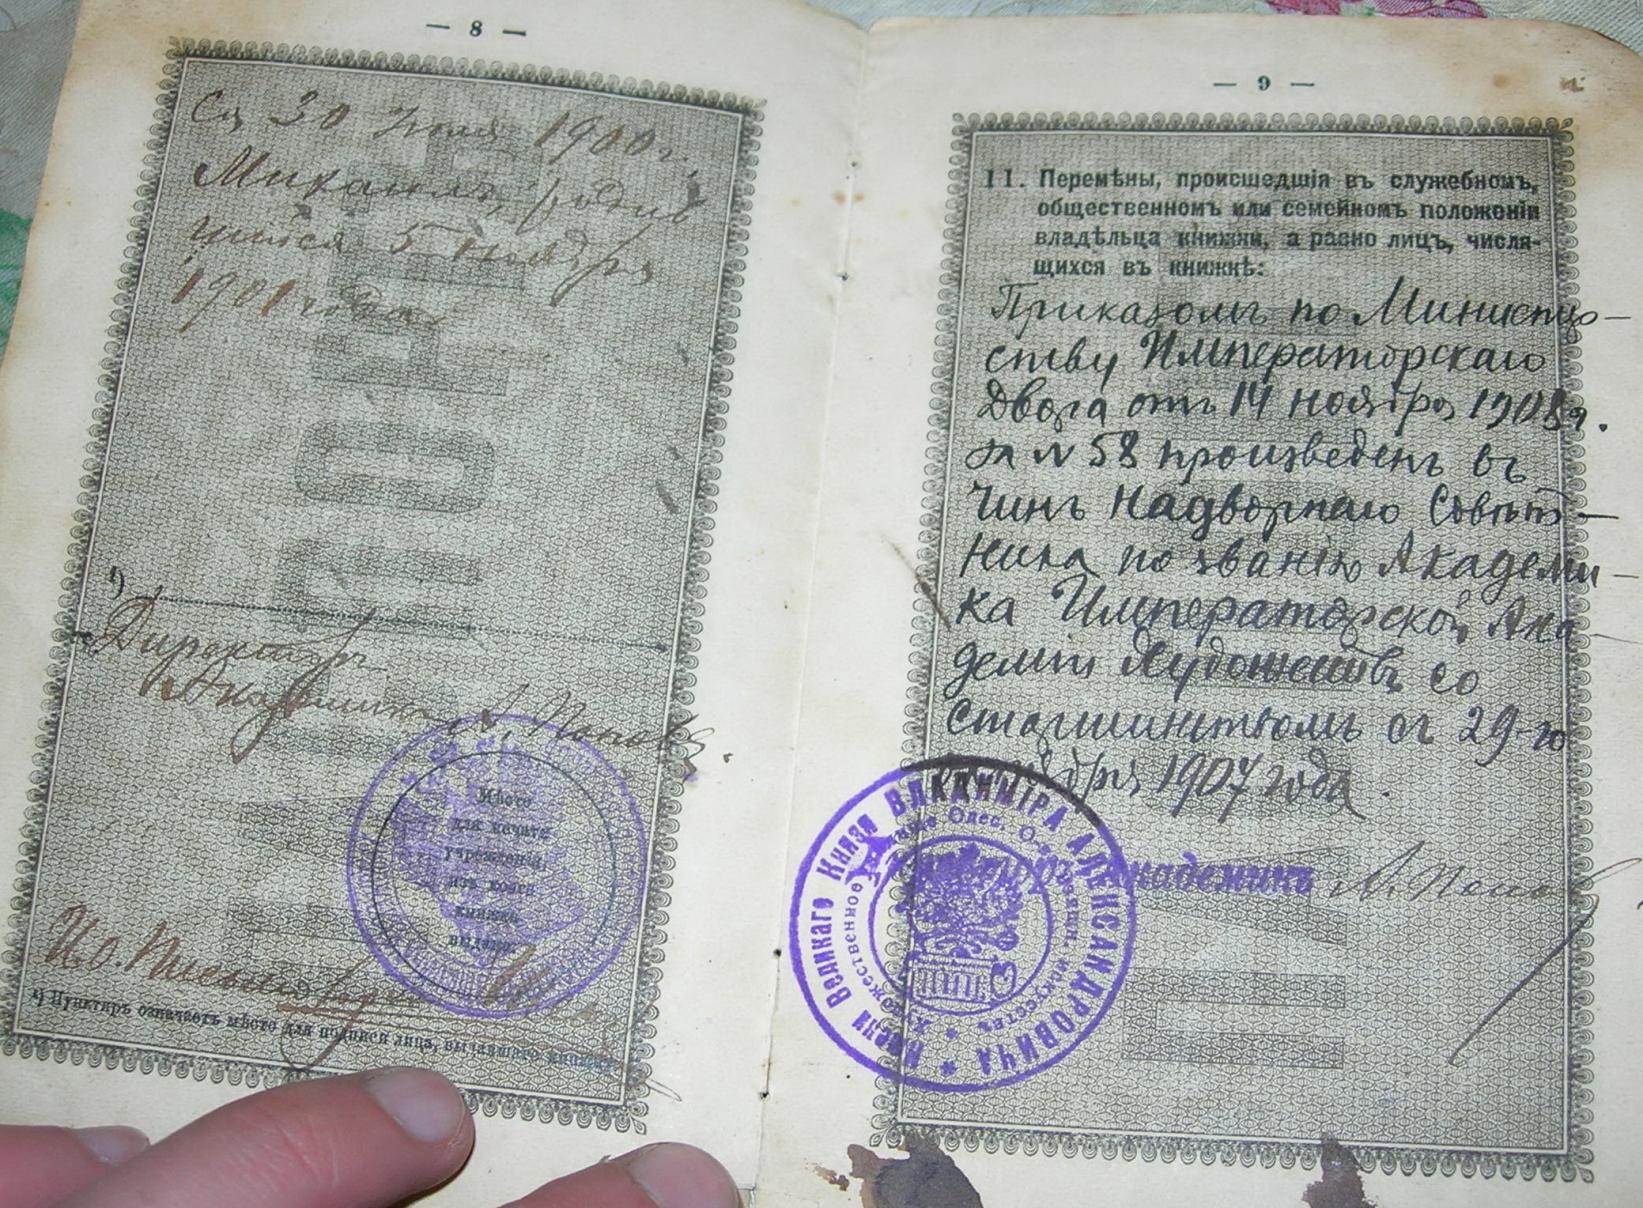 — 8 —
30 1900 г.
Михаилъ, родив
шійся 5 Ноября
1901 года
¹)
Директоръ
Академикъ А. Поповъ.
Мѣсто
для печати
учрежденія,
изъ коего
книжка
выдана.
И.О. Письмоводителя
¹) Пунктиръ означаетъ мѣсто для подписи лица, выдавшаго книжку.
— 9 —
11. Перемѣны, происшедшія въ служебномъ,
общественномъ или семейномъ положеніи
владѣльца книжки, а равно лицъ, числя-
щихся въ книжкѣ:
Приказомъ по Министер-
ству Императорскаго
Двора отъ 14 ноября 1908 г.
за № 58 произведенъ въ
чинъ Надворнаго Совѣт-
ника по званію Академи-
ка Императорской Ака
деміи Художествъ со
старшинствомъ съ 29-го
1907 года.
Академикъ А. Поповъ
Великаго Князя Владиміра Александровича
Художественное училище Одес. Об. изящн. искусствъ